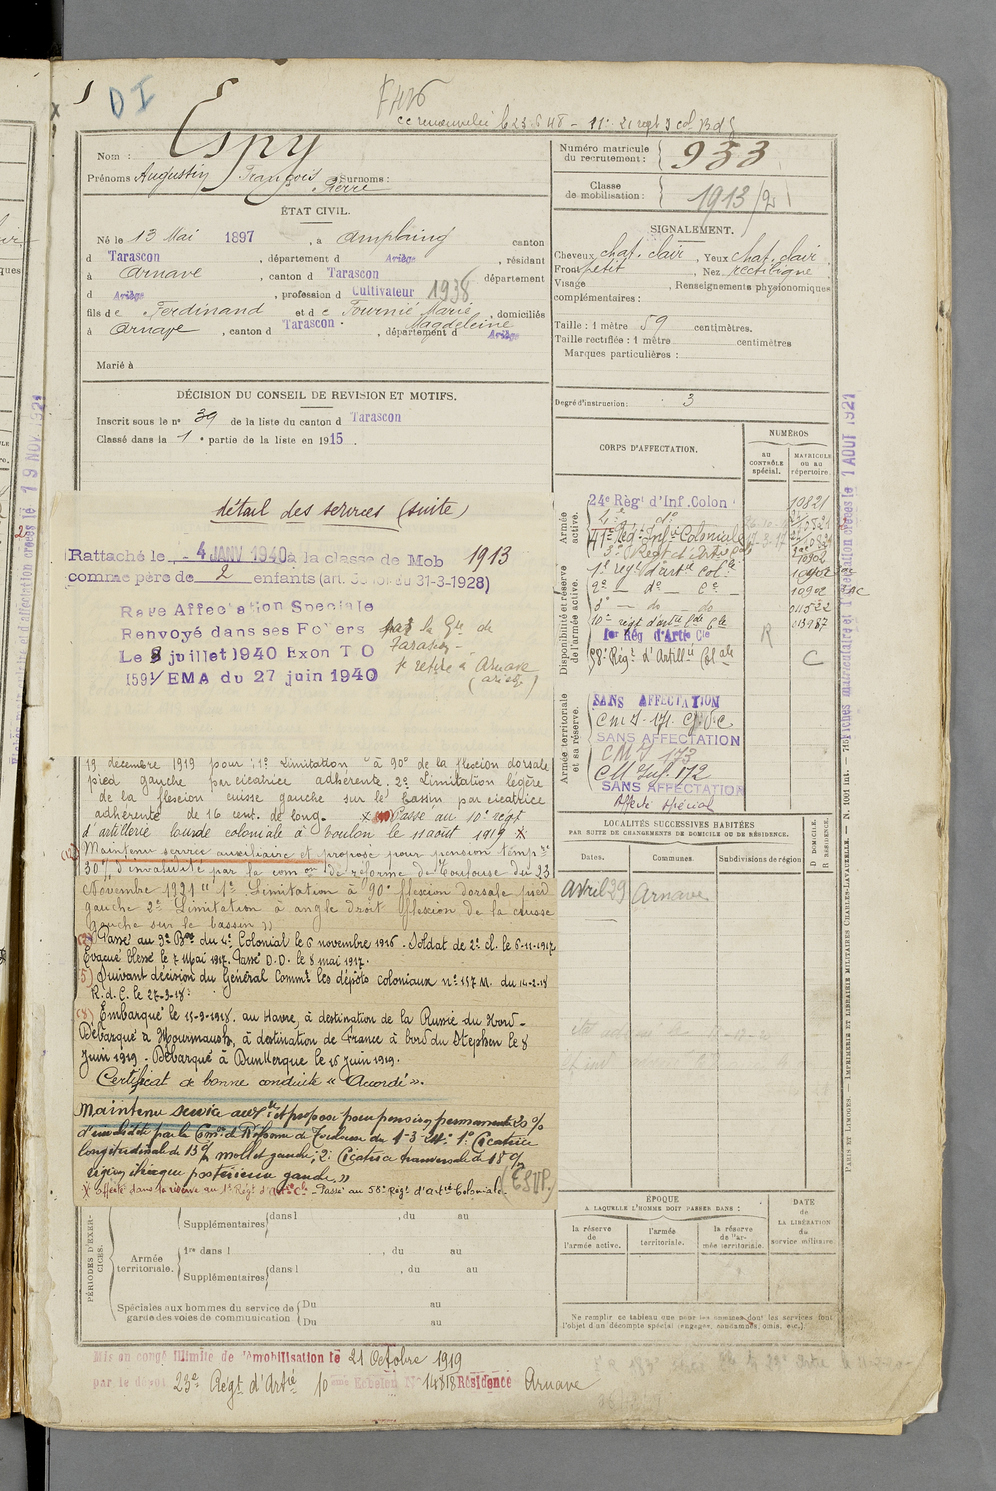 DI
Nom : Espy
Prénoms Augustin François Pierre Surnoms :
ÉTAT CIVIL.
Né le 13 Mai 1897, à Amplaing canton
d Tarascon, département d Ariège, résidant
à Arnave, canton d Tarascon département
d Ariège, profession d Cultivateur 1938
fils de Ferdinand et de Fournié Marie Magdeleine, domiciliés
à Arnave, canton d Tarascon, département d Ariège
Marié à
DÉCISION DU CONSEIL DE REVISION ET MOTIFS.
Inscrit sous le n° 39 de la liste du canton d Tarascon
Classé dans la 1e partie de la liste en 1915.
détail des services (suite)
Rattaché le 4 JANV 1940 à la classe de Mob 1913
comme père de 2 enfants (art. du 31-3-1928)
Renvoyé dans ses Foyers par la Gie de
Tarascon -
Le 8 juillet 1940 Exon T O
se retire à Arnave
(Ariège)
1591/EMA du 27 juin 1940
19 décembre 1919 pour : 1° Limitation à 90° de la flexion dorsale
pied gauche par cicatrice adhérente. 2° Limitation légère
de la flexion cuisse gauche sur le bassin par cicatrice
adhérente de 16 cent. de long. Passé au 10e régt
d'artillerie lourde coloniale à Toulon le 11 août 1919
Maintenu service auxiliaire et proposé pour pension tempre
30% d'invalidité par la comon de réforme de Toulouse du 23
Novembre 1921 "1° Limitation à 90° flexion dorsale pied
gauche 2° Limitation à angle droit flexion de la cuisse
gauche sur le bassin"
Passé au 9e Bon du 4e Colonial le 6 novembre 1916. Soldat de 2e cl. le 6-11-1917
Evacué blessé le 7 Mai 1917. Passé D.D. le 8 mai 1917.
(5) Suivant décision du Général Commt les dépôts coloniaux n° 157 M. du 14-2-18
R.d.C. le 27-3-18.
(8) Embarqué le 15-9-1918. au Havre, à destination de la Russie du Nord -
Débarqué à Mourmansk, à destination de France à bord du Stephen le 8
Juin 1919 - Débarqué à Dunkerque le 15 Juin 1919.
Certificat de bonne conduite "Accordé".
Maintenu service auxre et proposé pour pension permanente 20%
d'invalidité par la Comon de Réforme de Toulouse du 1-3-24. 1° Cicatrice
longitudinale de 15 % mollet gauche; 2° Cicatrice transversale de 18 %
région postérieure gauche"
(ESPY)
affecté dans la réserve au 1e Régt d'Artie Cle - Passé au 58e Régt d'Artie Coloniale.
PÉRIODES D'EXERCICES.
Supplémentaires dans l , du au
Armée territoriale.
1re dans l , du au
Supplémentaires dans l , du au
Spéciales aux hommes du service de garde des voies de communication
Du au
Du au
Mis en congé illimité de démobilisation le 21 Octobre 1919
par le dépôt 23e Régt d'Artie 10 ème Echelon N° 14818 Résidence Arnave
Numéro matricule du recrutement : 933
Classe de mobilisation : 1913/2
SIGNALEMENT.
Cheveux chat. clair, Yeux chat. clair
Front petit, Nez rectiligne
Visage , Renseignements physionomiques
complémentaires :
Taille : 1 mètre 59 centimètres.
Taille rectifiée : 1 mètre centimètres
Marques particulières :
Degré d'instruction : 3
CORPS D'AFFECTATION.
NUMÉROS
AU CONTRÔLE spécial.
MATRICULE OU AU répertoire.
Armée active.
24e Régt d'Inf. Colon 10821
4e do
Disponibilité et réserve de l'armée active.
1e régt d'artie Colle
2e - do - Cle 10902
3e - do - do -
10e régt d'artie Cle
1er Rég d'Artie Cle
58e Régt d'Artillie Colale C
R
Armée territoriale et sa réserve.
SANS AFFECTATION
SANS AFFECTATION
CMI 173
CM Inf. 172
SANS AFFECTATION
Affecté Spécial
LOCALITÉS SUCCESSIVES HABITÉES
PAR SUITE DE CHANGEMENTS DE DOMICILE OU DE RÉSIDENCE.
Dates.
Communes.
Subdivisions de région.
D DOMICILE.
R RÉSIDENCE.
Avril 29 Arnave
ÉPOQUE
A LAQUELLE L'HOMME DOIT PASSER DANS :
la réserve de l'armée active.
l'armée territoriale.
la réserve de l'armée territoriale.
DATE de LA LIBÉRATION du service militaire.
Ne remplir ce tableau que pour les hommes dont les services font
l'objet d'un décompte spécial (engagés, condamnés, omis, etc.).
Fiches matriculaire et d'affectation créées le 1 AOUT 1921
PARIS ET LIMOGES. — IMPRIMERIE ET LIBRAIRIE MILITAIRES CHARLES-LAVAUZELLE. — N. 1001 int.